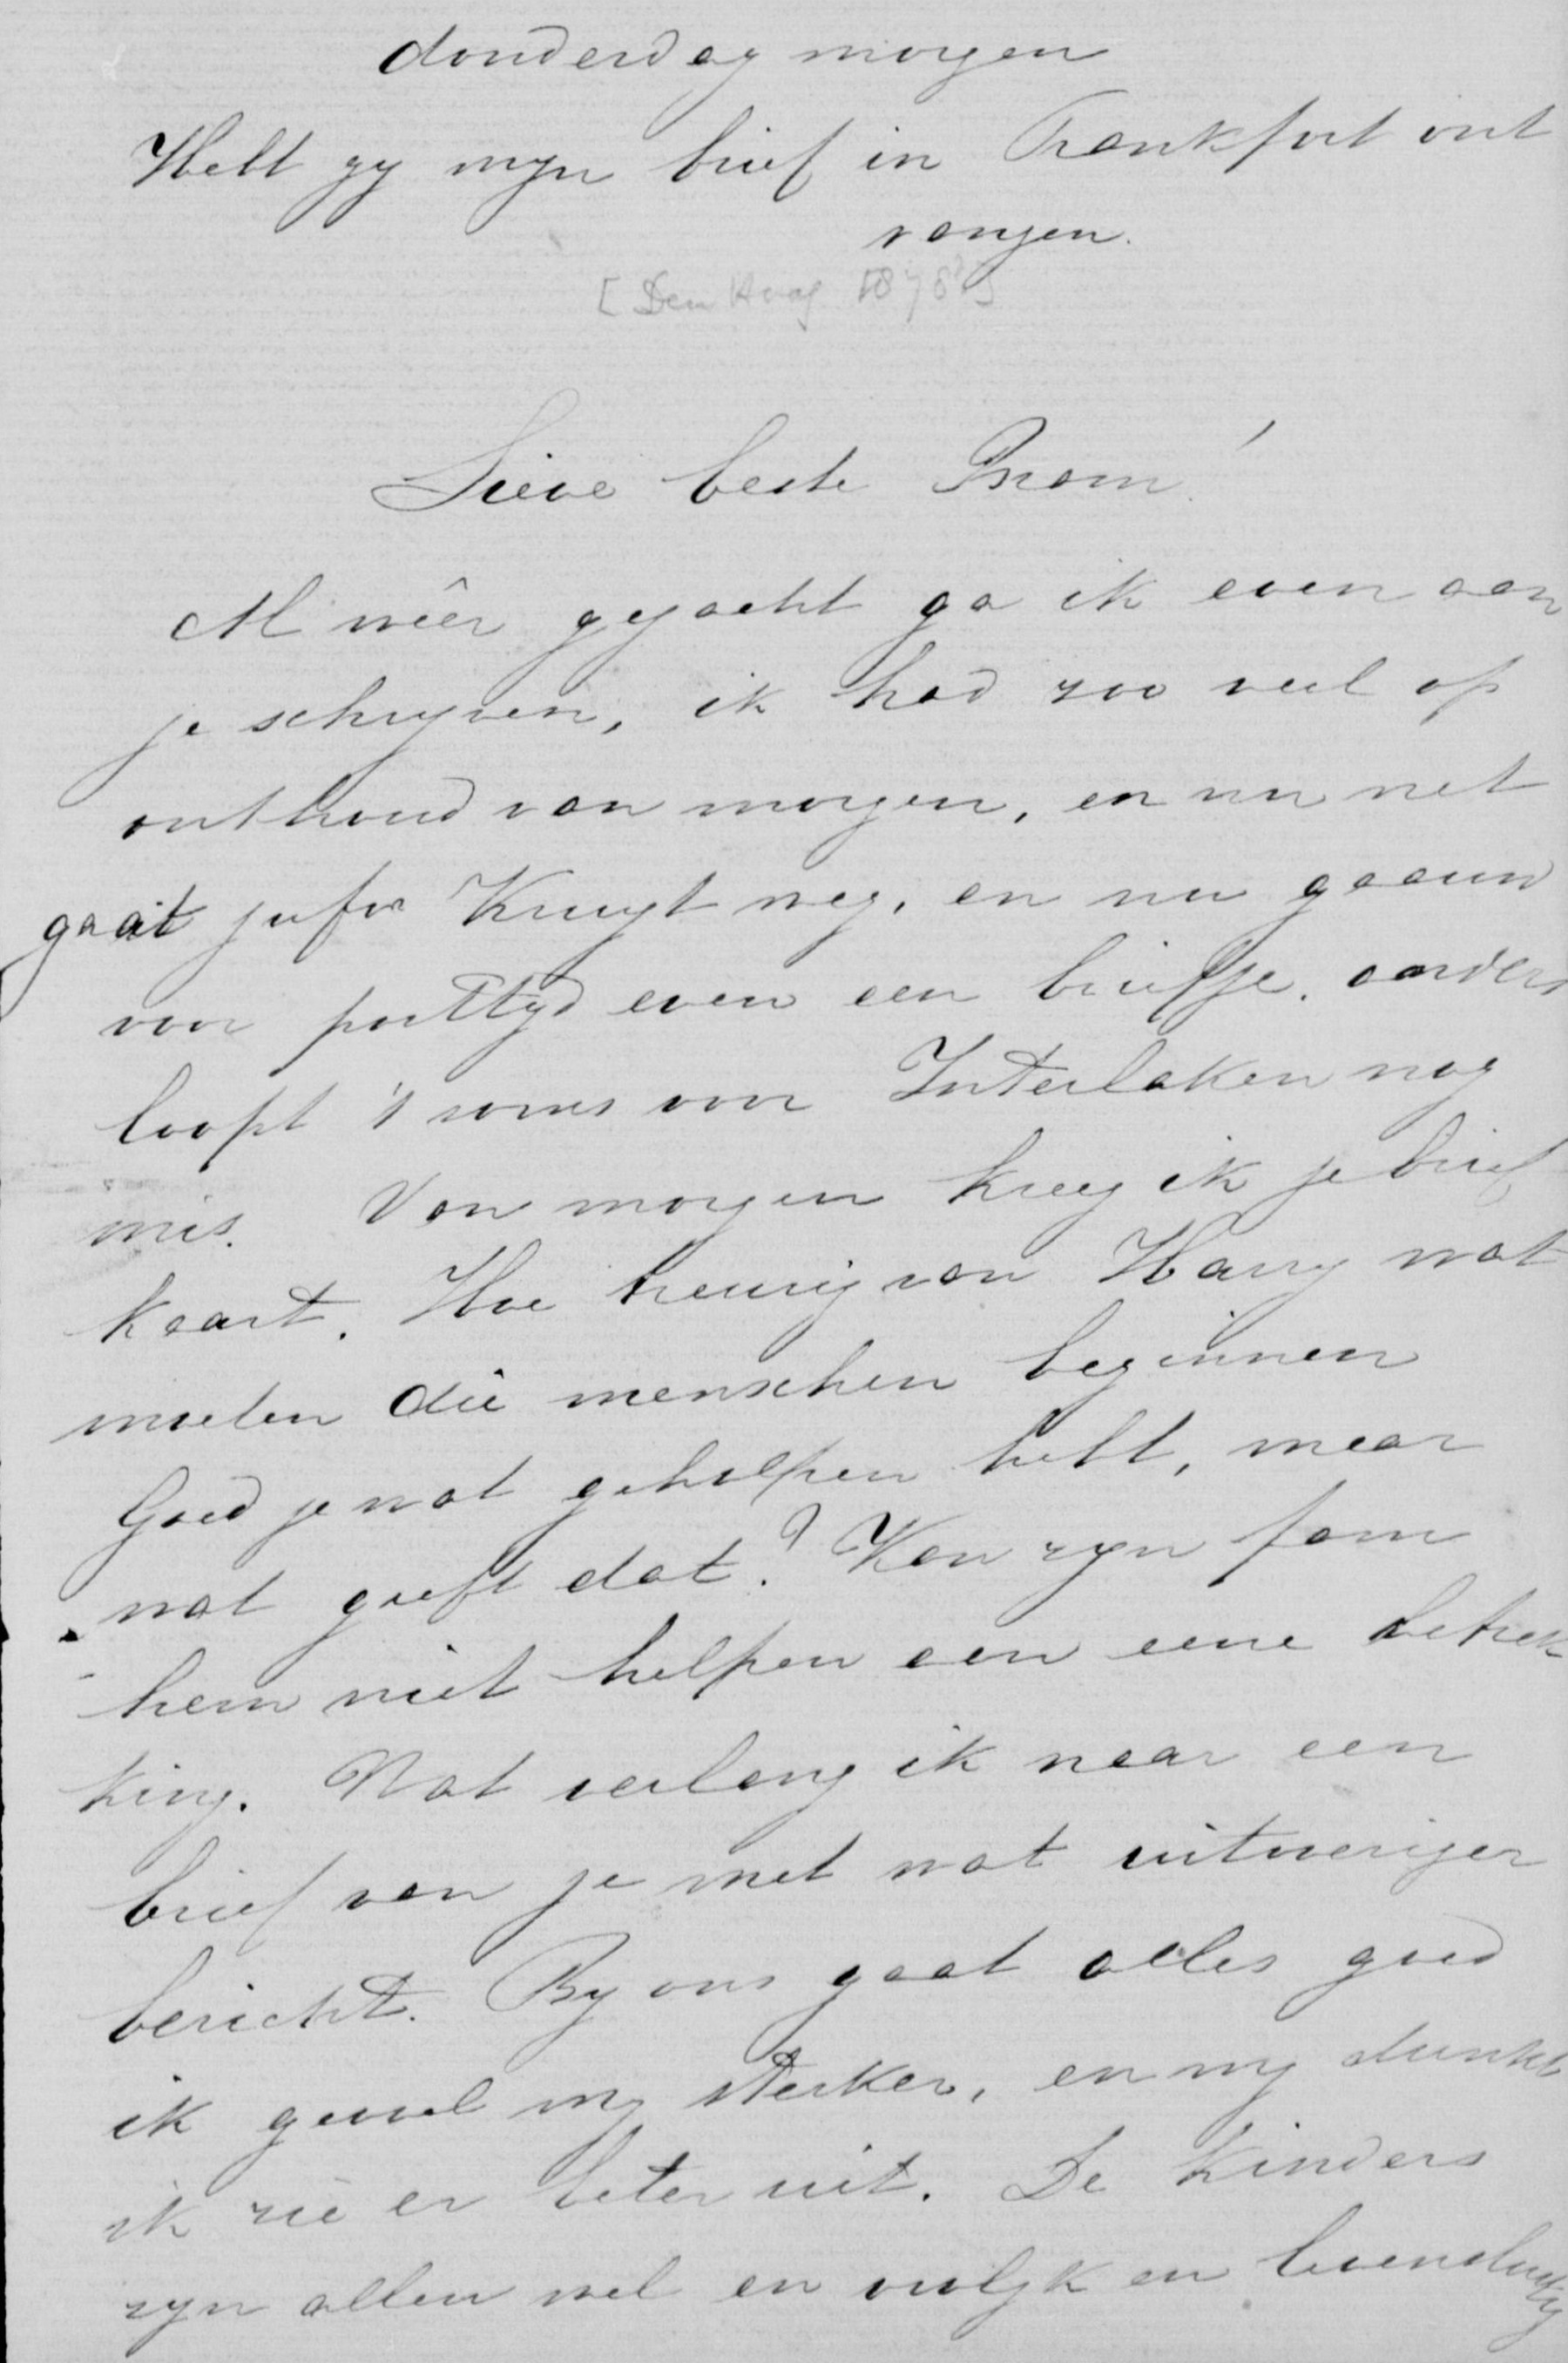 donderdag morgen
Hebt gy myn brief in Frankfort ont
vangen.
[Den Haag 1878?]
Lieve beste Bram!
Al wêer gejacht ga ik even aan
je schryven, ik had zoo veel op
onthoud van morgen, en nu net
gaat jufvr Kruyt weg, en nu gaauw
voor posttyd even een briefje. anders
loopt 't soms voor Interlaken nog
mis. Van morgen kreeg ik je brief
kaart. Hoe treurig van Harry wat
moeten die menschen beginnen
Goed je wat geholpen hebt, maar
wat geeft dat? Kan zyn fam
hem niet helpen aan eene betrek
king. Wat verlang ik naar een
brief van je met wat uitvoeriger
bericht. By ons gaat alles goed
ik gevoel my sterker, en my dunkt
ik zie er beter uit. De kinders
zyn allen wel en vrolyk en levenslustig